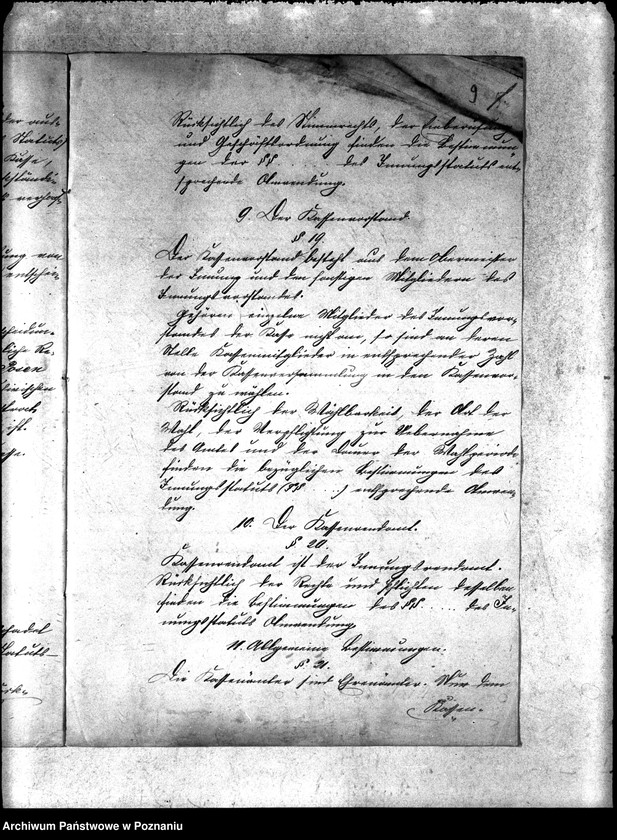 9
Rücksichtlich des Stimmrechts, der Einberufung
und Geschäftsordnung finden die Bestimmun-
gen der §§ . . . . des Innungsstatuts ent-
sprechende Anwendung.
9. Der Kassenvorstand.
§ 19.
Der Kassenvorstand besteht aus dem Obermeister
der Innung und den sonstigen Mitgliedern des
Innungsvorstandes.
Gehören einzelne Mitglieder des Innungsvor-
standes der Kasse nicht an, so sind an deren
Stelle Kassenmitglieder in entsprechender Zahl
von der Kassenversammlung in den Kassenvor-
stand zu wählen.
Rücksichtlich der Wählbarkeit, der Art der
Wahl, der Verpflichtung zur Uebernahme
des Amtes und der Dauer der Wahlperiode
finden die bezüglichen Bestimmungen des
Innungsstatuts (§§ . . .) entsprechende Anwen-
dung.
10. Der Kassenrendant.
§ 20.
Kassenrendant ist der Innungsrendant.
Rücksichtlich der Rechte und Pflichten desselben
finden die Bestimmungen des §§ . . . . des In-
nungsstatuts Anwendung.
11. Allgemeine Bestimmungen.
§ 21.
Die Kassenämter sind Ehrenämter. Nur dem
Kassen-
Archiwum Państwowe w Poznaniu